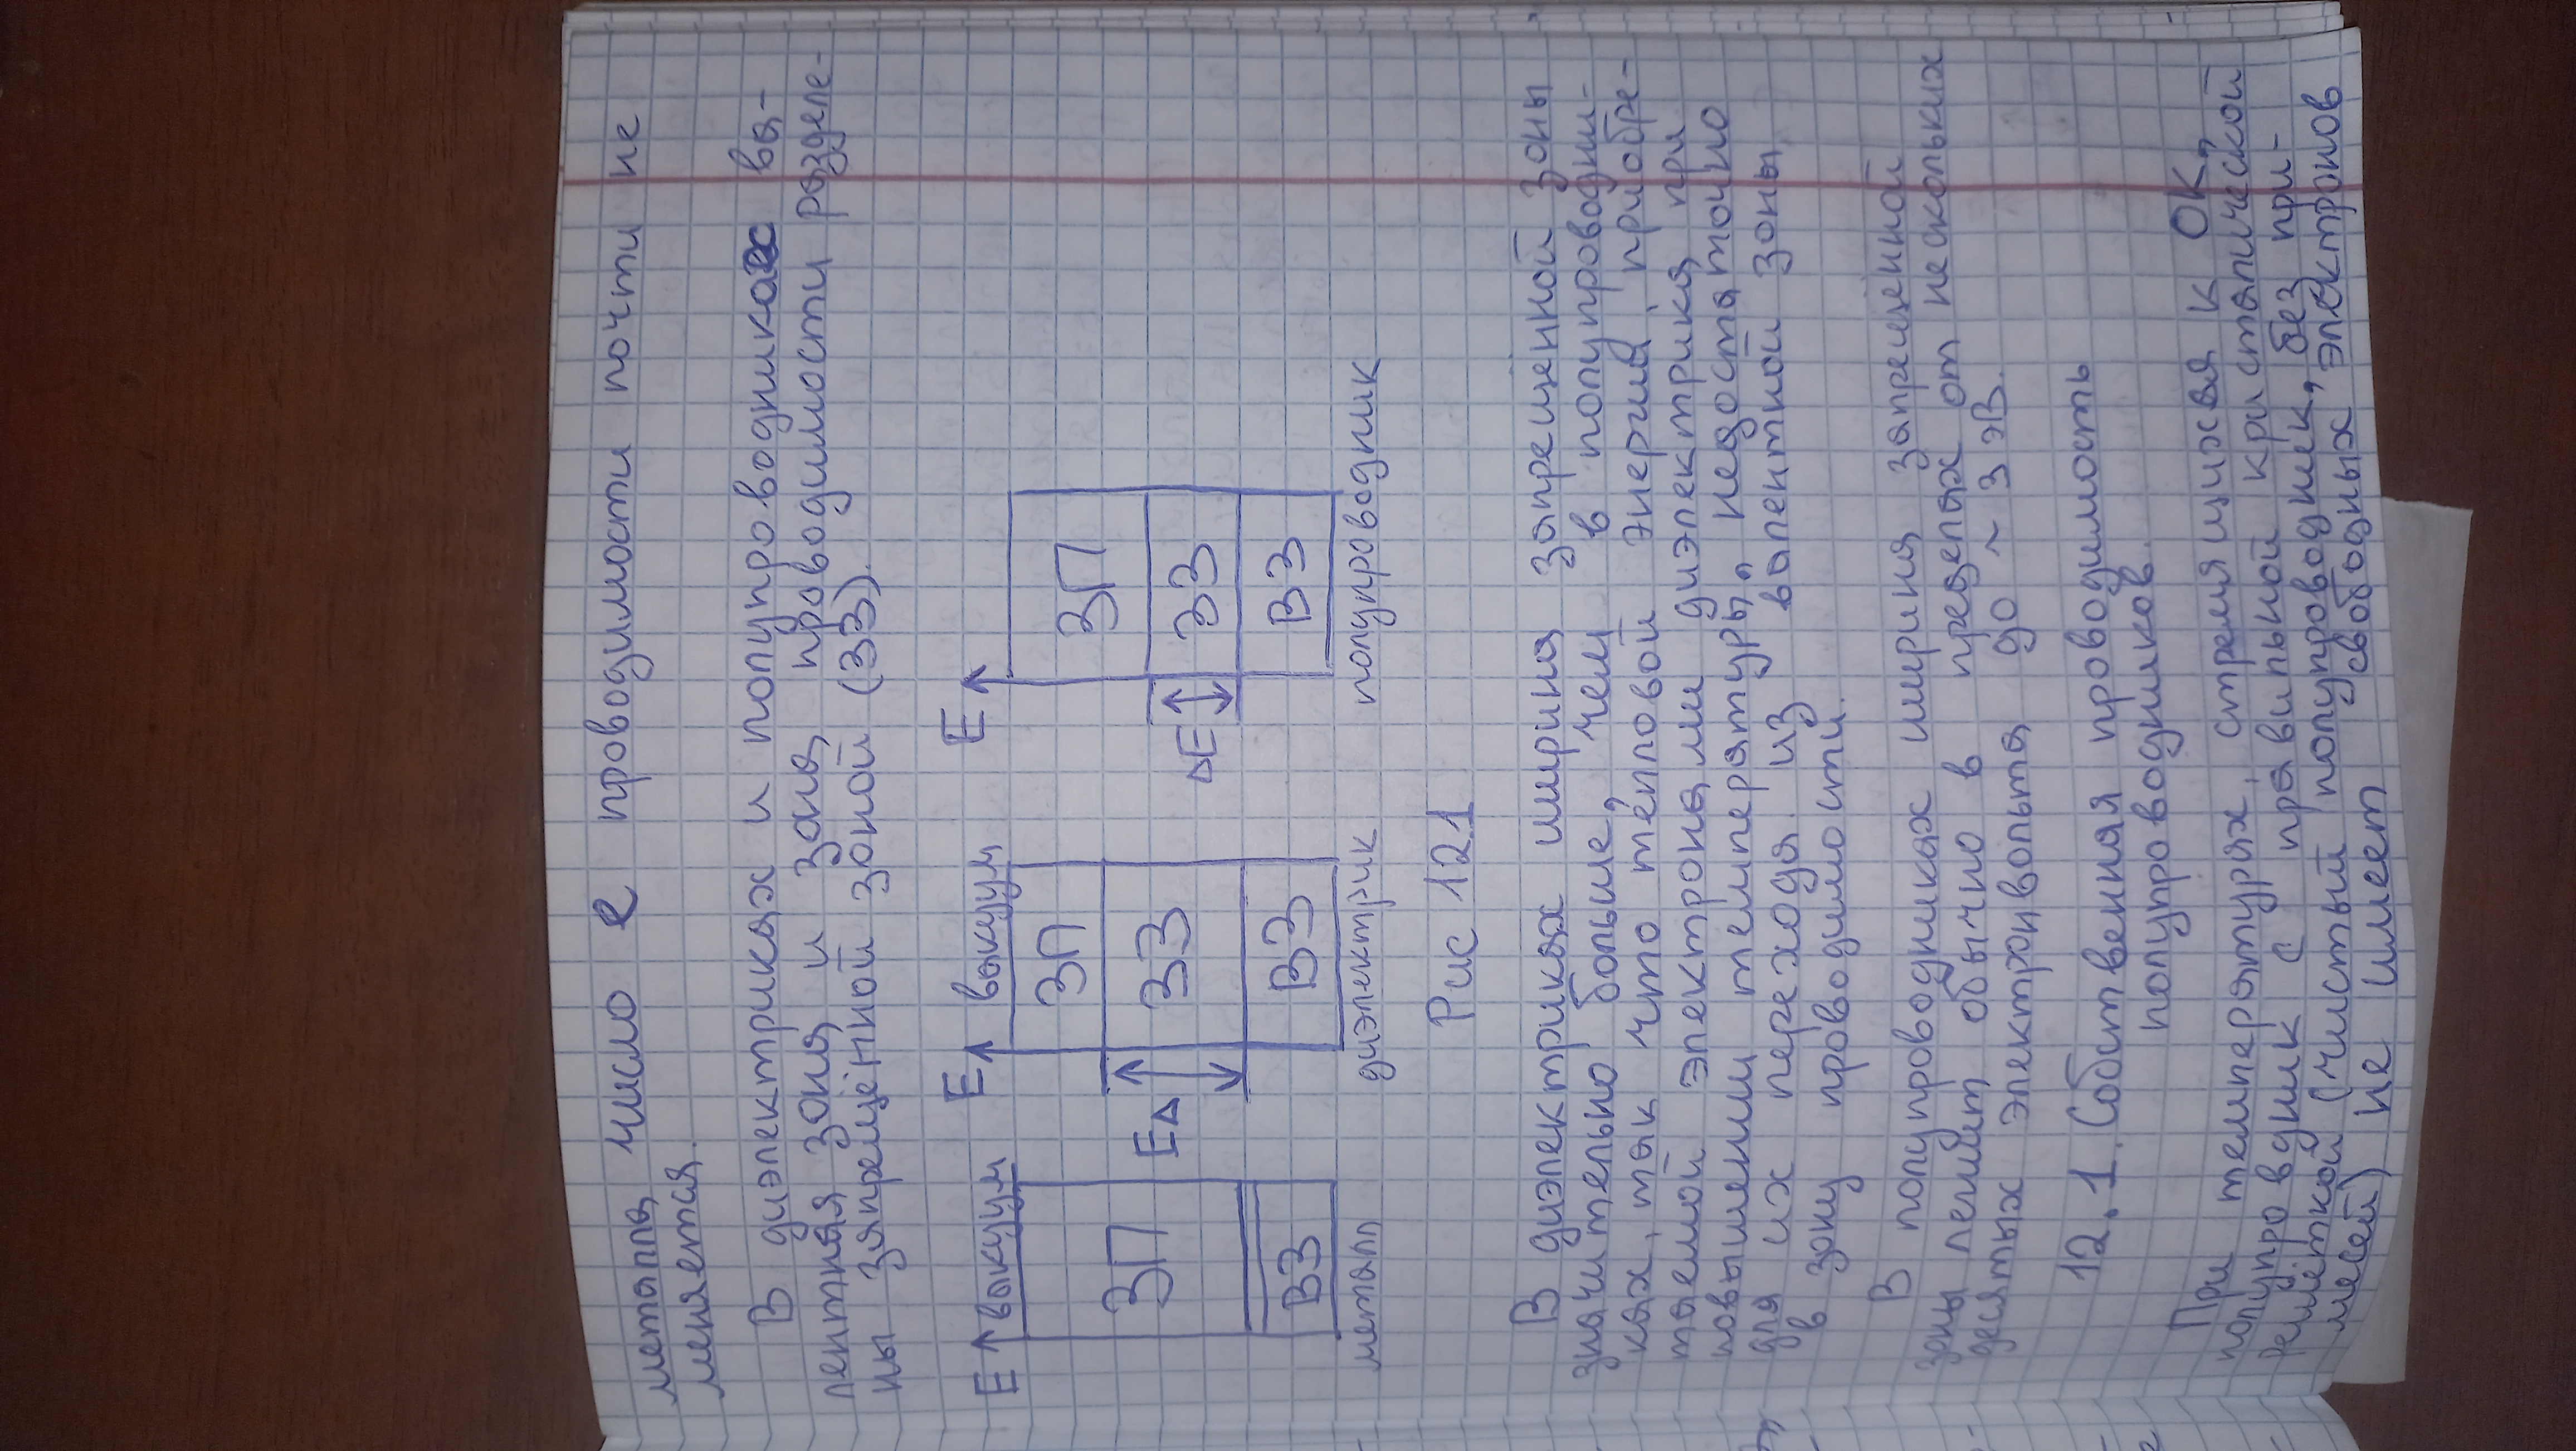 металла число е проводимости почти не
меняется.
В диэлектриках и полупроводниках ва-
лентная зона и зона проводимости разделе-
ны зяпрещённой зоной (ЗЗ).
E вакуум
ЗП
ВЗ
металл
E вакуум
ЗП
EΔ
ЗЗ
ВЗ
диэлектрик
E
ЗП
ΔE
ЗЗ
ВЗ
полупроводник
Рис 12.1
В диэлектриках ширина запрещённой зоны
значительно больше, чем в полупроводни-
ках, так что тепловой энергии, приобре-
таемой электронами диэлектрика при
повышении температуры, недостаточно
для их перехода из валентной зоны
в зону проводимости.
В полупроводниках ширина запрещённой
зоны лежит обычно в пределах от нескольких
десятых электронвольта до ~ 3 эВ.
12.1. Собственная проводимость
полупроводников.
При температурах, стремящихся к 0К,
полупровдник с правильной кристалической
решёткой (чистый полупроводник, без при-
месей) не имеет свободных электронов